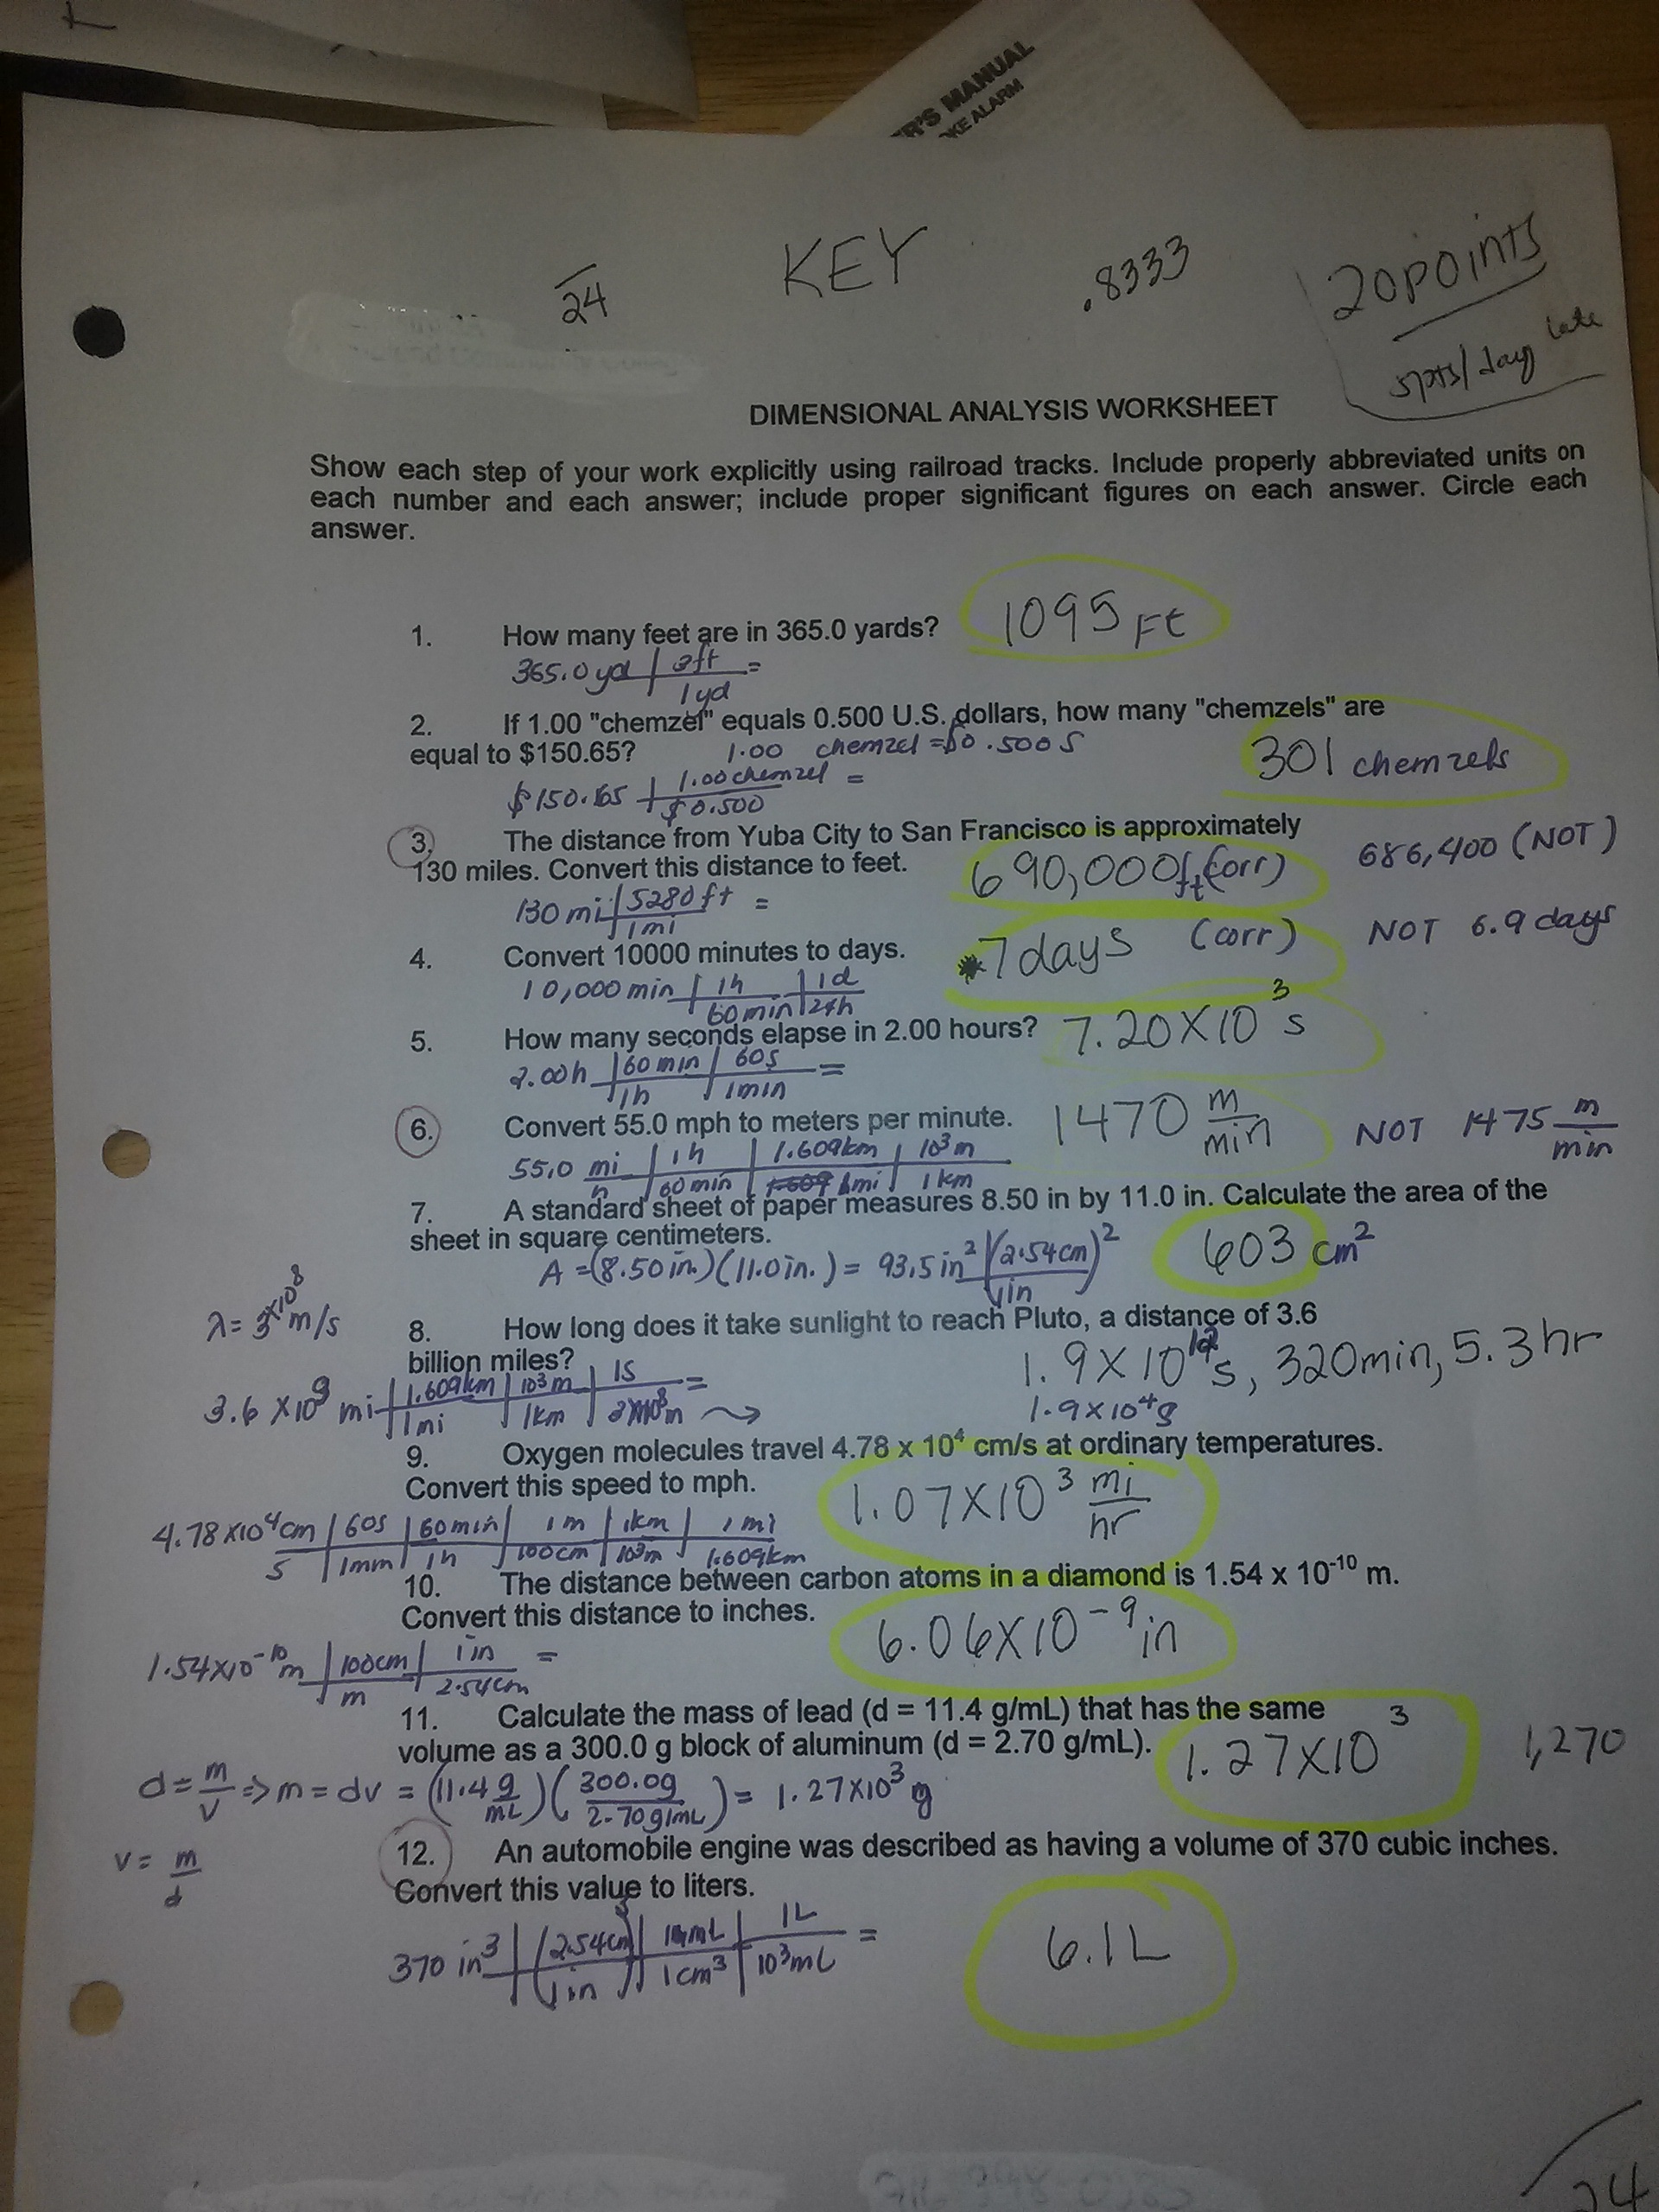 R'S MANUAL
KE ALARM
24
KEY
.8333
20 POINTS
5pts/day late
DIMENSIONAL ANALYSIS WORKSHEET
Show each step of your work explicitly using railroad tracks. Include properly abbreviated units on
each number and each answer; include proper significant figures on each answer. Circle each
answer.
1. How many feet are in 365.0 yards? 1095 Ft
365.0 yd | 3ft =
1yd
2. If 1.00 "chemzel" equals 0.500 U.S. dollars, how many "chemzels" are
equal to $150.65? 1.00 chemzel = $0.500 301 chemzels
$150.65 | 1.00 chemzel =
$0.500
3. The distance from Yuba City to San Francisco is approximately
130 miles. Convert this distance to feet. 690,000 ft (corr) 686,400 (NOT)
130 mi | 5280 ft =
1mi
4. Convert 10000 minutes to days. 7 days (corr) NOT 6.9 days
10,000 min | 1h | 1d
60min | 24h
5. How many seconds elapse in 2.00 hours? 7.20X10³ s
2.00h | 60 min | 60s =
1h | 1min
6. Convert 55.0 mph to meters per minute. 1470 m/min NOT 1475 m/min
55.0 mi | 1h | 1.609km | 10³m
h | 60 min | 1.609 1mi | 1km
7. A standard sheet of paper measures 8.50 in by 11.0 in. Calculate the area of the
sheet in square centimeters. 603 cm²
A = (8.50 in.)(11.0 in.) = 93.5 in² | (2.54cm)²
1in
λ = 3×10⁸ m/s
8. How long does it take sunlight to reach Pluto, a distance of 3.6
billion miles? 1.9 X 10 s, 320min, 5.3 hr
3.6 X10⁹ mi | 1.609km | 10³m | 1s =
1mi | 1km
1.9 X 10⁴
9. Oxygen molecules travel 4.78 x 10⁴ cm/s at ordinary temperatures.
Convert this speed to mph. 1.07X10³ mi/hr
4.78 X10⁴ cm | 60s | 60min | 1m | 1km | 1mi
s | 1min | 1h | 100cm | 10³m | 1.609km
10. The distance between carbon atoms in a diamond is 1.54 x 10⁻¹⁰ m.
Convert this distance to inches. 6.06X10⁻⁹ in
1.54X10⁻¹⁰ m | 100cm | 1 in =
m | 2.54cm
11. Calculate the mass of lead (d = 11.4 g/mL) that has the same
volume as a 300.0 g block of aluminum (d = 2.70 g/mL). 1.27X10³ 1,270
d = m/v => m = dv = (11.4 g/mL)(300.0g/2.70g/mL) = 1.27X10³ g
v = m/d
12. An automobile engine was described as having a volume of 370 cubic inches.
Convert this value to liters. 6.1L
370 in³ | (2.54cm)³ | 1mL | 1L =
1in | 1cm³ | 10³mL
24